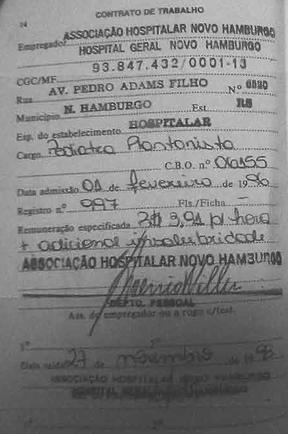 14 CONTRATO DE TRABALHO
Empregador ASSOCIAÇÃO HOSPITALAR NOVO HAMBURGO
HOSPITAL GERAL NOVO HAMBURGO
CGC/MF 93.847.432/0001-13
Rua AV. PEDRO ADAMS FILHO Nº 6520
Município N. HAMBURGO Est. RS
Esp. do estabelecimento HOSPITALAR
Cargo Pediatra Plantonista
C.B.O. nº 06155
Data admissão 01 de fevereiro de 1996
Registro nº 997 Fls./Ficha –
Remuneração especificada R$ 3,91 p/ hora
+ adicional insalubridade
ASSOCIAÇÃO HOSPITALAR NOVO HAMBURGO
DEPTO. PESSOAL
Ass. do empregador ou a rogo c/test.
1º 2º
Data saída 27 de novembro de 1998
ASSOCIAÇÃO HOSPITALAR NOVO HAMBURGO
HOSPITAL GERAL NOVO HAMBURGO
1º 2º